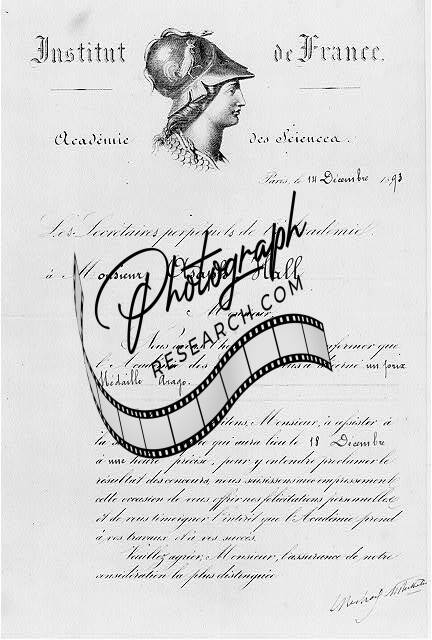 Institut de France.
Académie des Sciences.
Paris, le 14 Décembre 1893
Les Secrétaires perpétuels de l'Académie
à Monsieur Hall
Photograph
RESEARCH.COM
Monsieur
Nous avons informer que
l'Académie des a décerné un prix
Médaille Arago.
Monsieur, à assister à
la qui aura lieu le 18 Décembre
à une heure précise, pour y entendre proclamer le
résultat des concours, nous saisissons avec empressement
cette occasion de vous offrir nos félicitations personnelles
et de vous témoigner l'intérêt que l'Académie prend
à vos travaux et à vos succès.
Veuillez agréer, Monsieur, l'assurance de notre
considération la plus distinguée